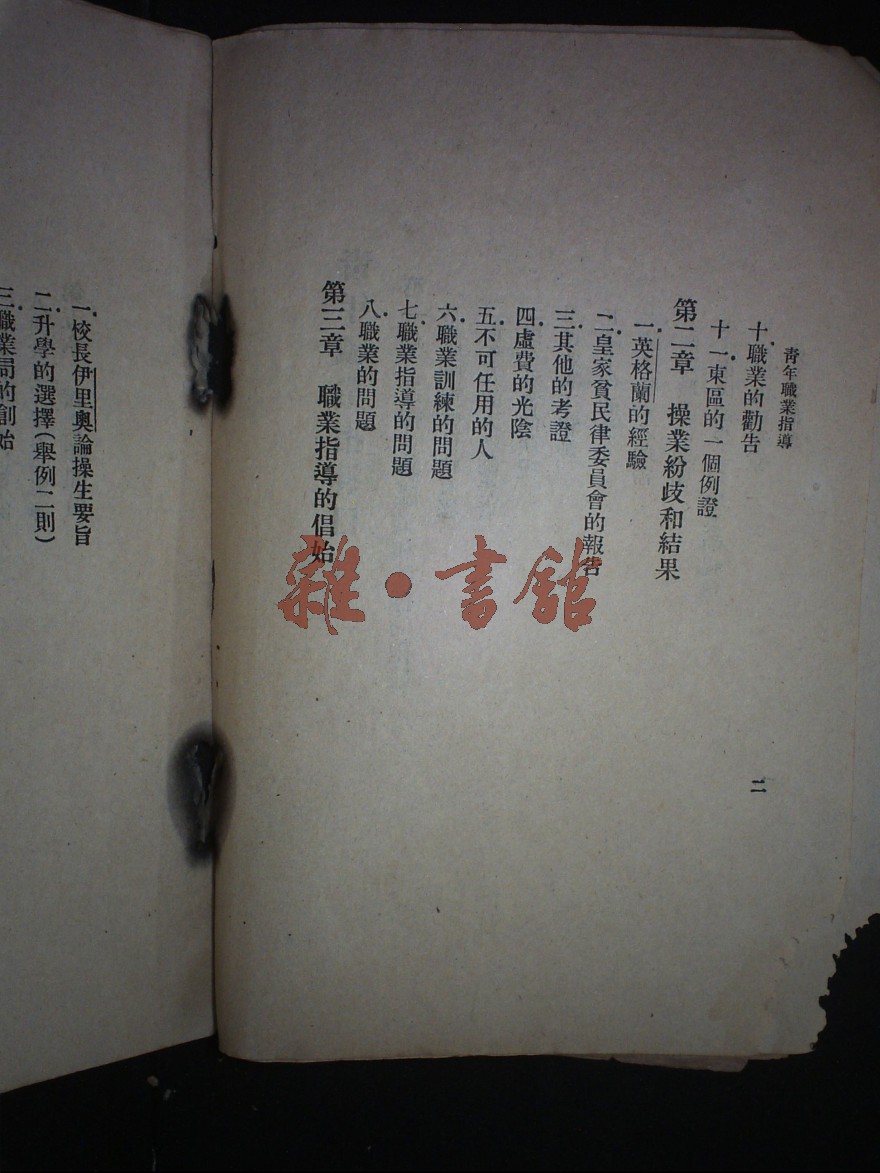 青年職業指導
十.職業的勸告
十一.東區的一個例證
第二章 操業紛歧和結果
一.英格蘭的經驗
二.皇家貧民律委員會的報告
三.其他的考證
四.虛費的光陰
五.不可任用的人
六.職業訓練的問題
七.職業指導的問題
八.職業的問題
第三章 職業指導的倡始
二
一.校長伊里奧論操生要旨
二.升學的選擇(舉例二則)
三.職業局的創始
雜·書館